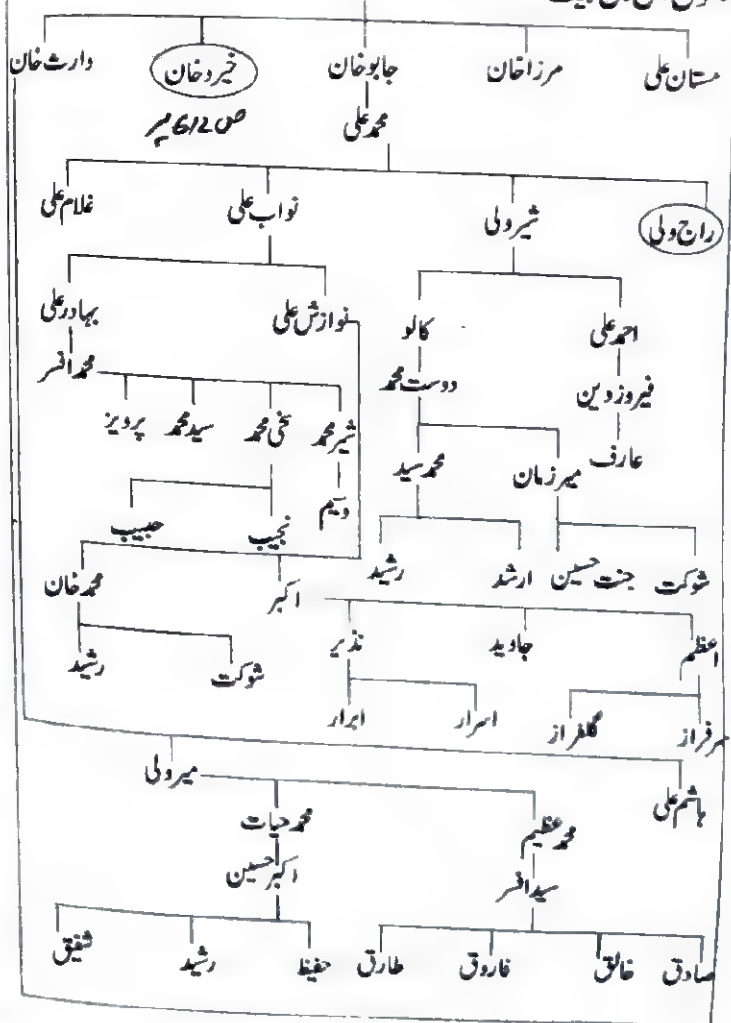 مستان علی مرزا خان جابو خان خیرو خان وارث خان
ص 612 پر
محمد علی
راج ولی شیر ولی نواب علی غلام علی
احمد علی کالو نوازش علی بہادر علی
فیروز دین دوست محمد محمد افسر
عارف شیر محمد سخی محمد سید محمد پرویز
میر زمان محمد سید وسیم نجیب حبیب
شوکت جنت حسین ارشد رشید اکبر محمد خان
اعظم جاوید نذیر شوکت رشید
سرفراز گلفراز اسرار ابرار
ہاشم علی میر ولی
محمد عظیم محمد حیات
سید افسر اکبر حسین
صادق خالق فاروق طارق حفیظ رشید شفیق